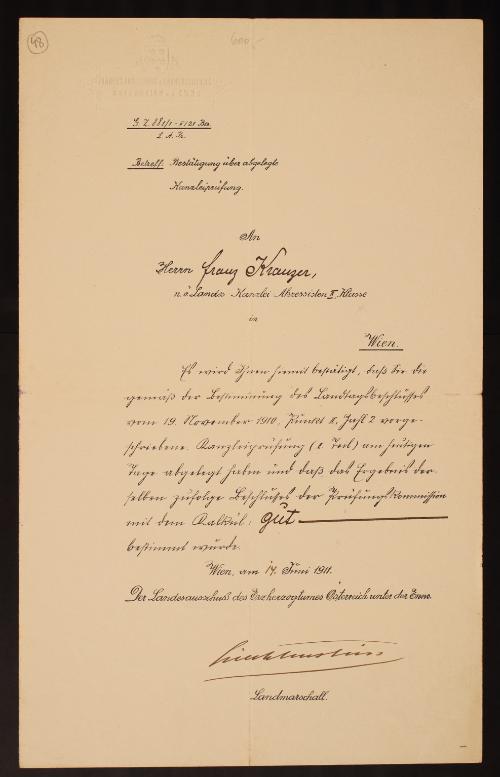 48
600,-
G.Z. 881/1 - 5121 Bea
L. A. Pr.
Betreff: Bestätigung über abgelegte
Kanzleiprüfung.
An
Herrn Franz Kranzer,
n.ö. Landes-Kanzlei Akzessisten II. Klasse
in
Wien.
Es wird Ihnen hiemit bestätigt, daß Sie die
gemäß der Bestimmung des Landtagsbeschlusses
vom 19. November 1910, Punkt II, Zahl 2 vorge-
schriebene Kanzleiprüfung (I. Teil) am heutigen
Tage abgelegt haben und daß das Ergebnis der-
selben zufolge Beschlusses der Prüfungskommission
mit dem Kalkül: gut
bestimmt wurde.
Wien, am 14. Juni 1911.
Der Landesausschuss des Erzherzogtumes Österreich unter der Enns.
Liechtenstein
Landmarschall.